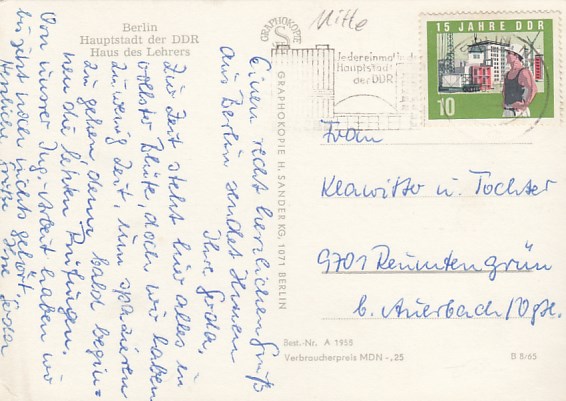 Berlin
Hauptstadt der DDR
Haus des Lehrers
Mitte
15 JAHRE DDR
10
Jedereinmal in
Hauptstadt
der DDR
GRAPHOKOPIE
GRAPHOKOPIE H. SANDER KG, 1071 BERLIN
Einen recht herzlichen Gruß
aus Berlin sendet Ihnen
Ihre Gerda.
Zur Zeit steht hier alles in
vollster Blüte, doch wir haben
zu wenig Zeit, um spazieren
zu gehen, denn bald begin-
nen die letzten Prüfungen.
Von unserer Ing.-Arbeit haben wir
bis jetzt noch nichts gehört.
Herzliche Grüße Ihre Gerda
Frau
Klawitter u. Tochter
9701 Reumtengrün
b. Auerbach/Vgtl.
Best.-Nr. A 1958
Verbraucherpreis MDN -,25
B 8/65